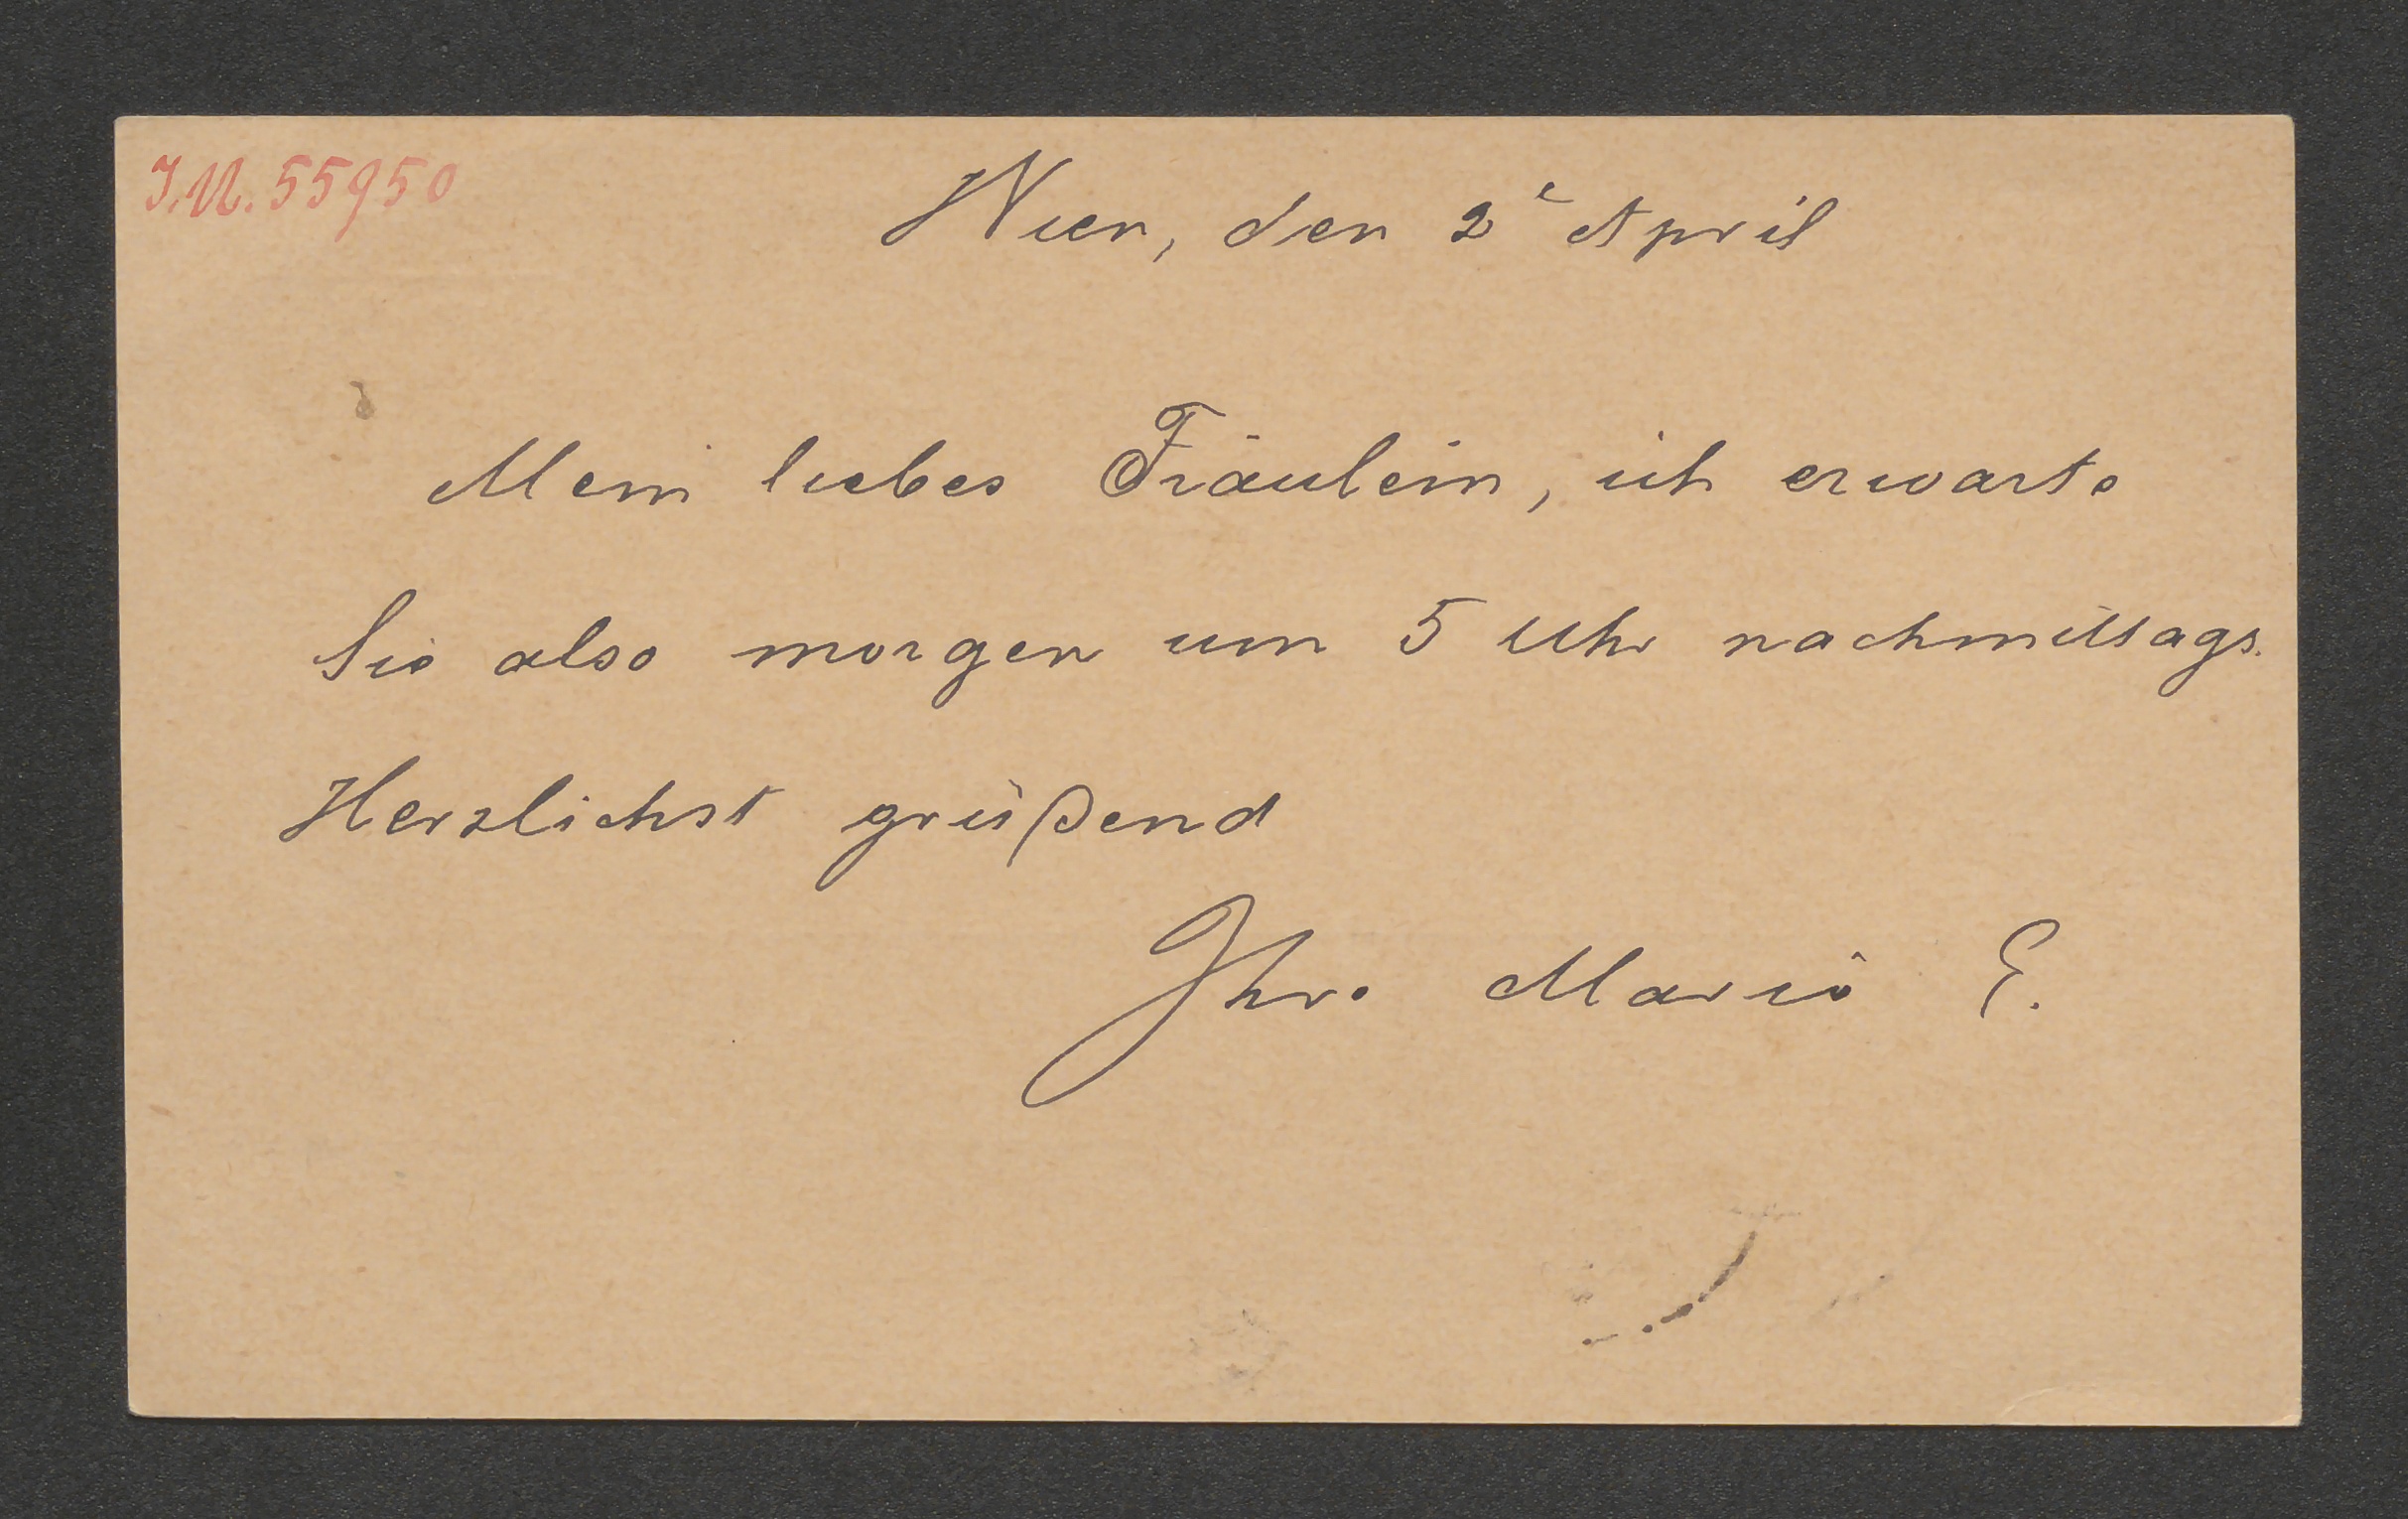 I.N. 55950
Wien, den 2t April
Mein liebes Fräulein, ich erwarte
Sie also morgen um 5 Uhr nachmittags.
Herzlichst grüßend
Ihre Marie E.